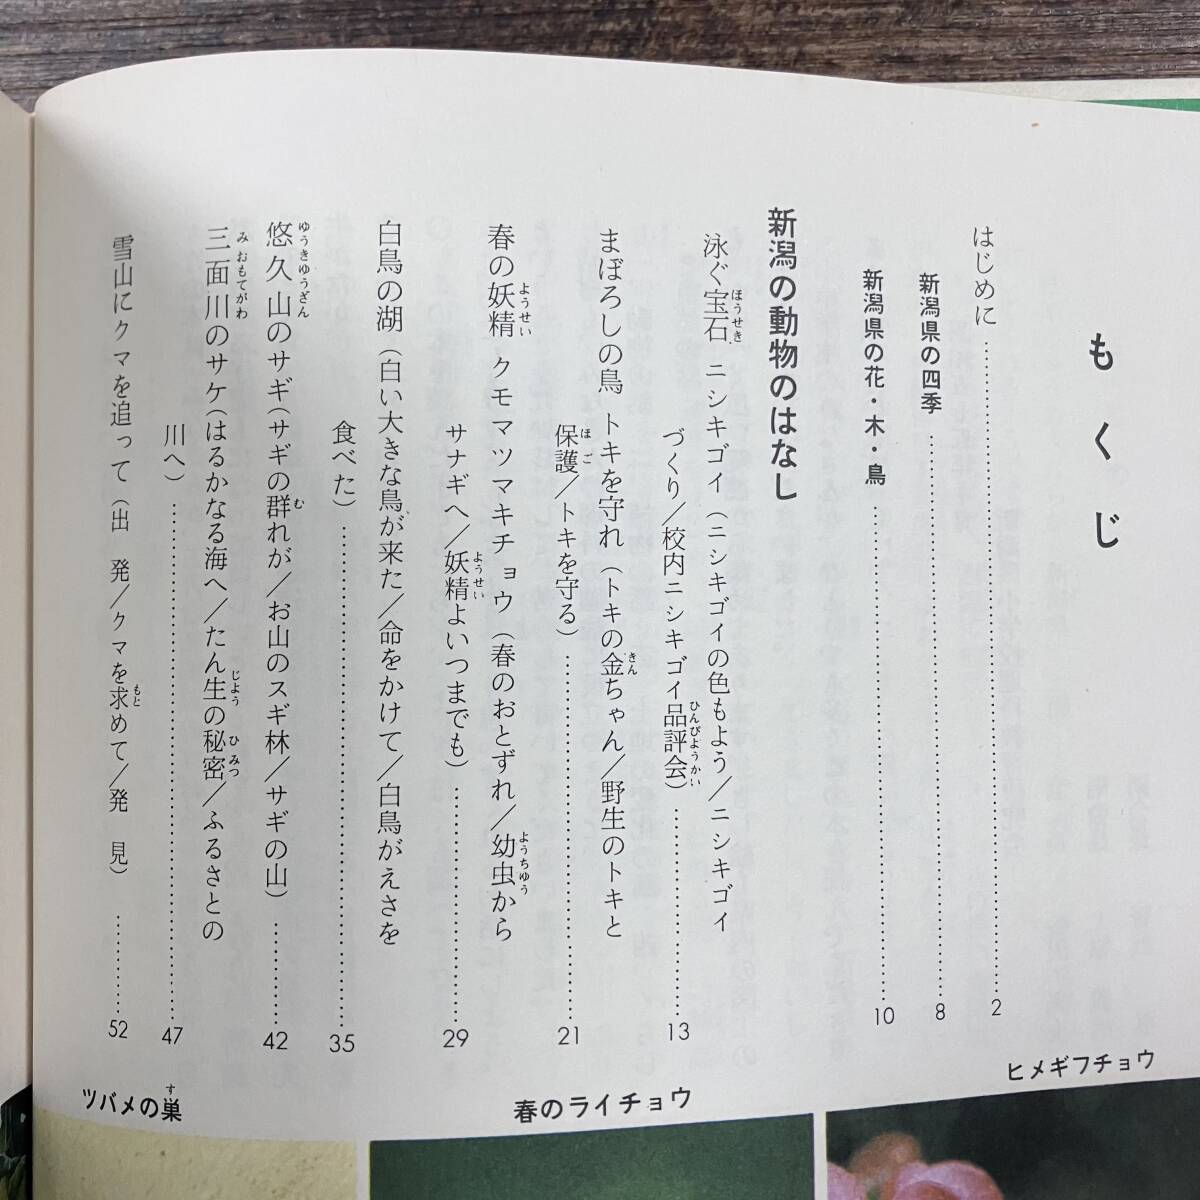 もくじ
はじめに…………………………2
新潟県の四季…………………………8
新潟県の花・木・鳥…………………………10
新潟の動物のはなし
泳ぐ宝石 ニシキゴイ（ニシキゴイの色もよう／ニシキゴイ
ほうせき
づくり／校内ニシキゴイ品評会）…………13
ひんぴようかい
まぼろしの鳥 トキを守れ（トキの金ちゃん／野生のトキと
きん
保護／トキを守る）…………………21
ほご
春の妖精 クモマツマキチョウ（春のおとずれ／幼虫から
ようせい
ようちゆう
サナギへ／妖精よいつまでも）…………29
ようせい
白鳥の湖（白い大きな鳥が来た／命をかけて／白鳥がえさを
食べた）…………………………35
悠久山のサギ（サギの群れが／お山のスギ林／サギの山）………42
ゆうきゆうざん
む
三面川のサケ（はるかなる海へ／たん生の秘密／ふるさとの
みおもてがわ
じよう
ひみつ
川へ）…………………………47
雪山にクマを追って（出 発／クマを求めて／発 見）………52
もと
ヒメギフチョウ
春のライチョウ
ツバメの巣
す